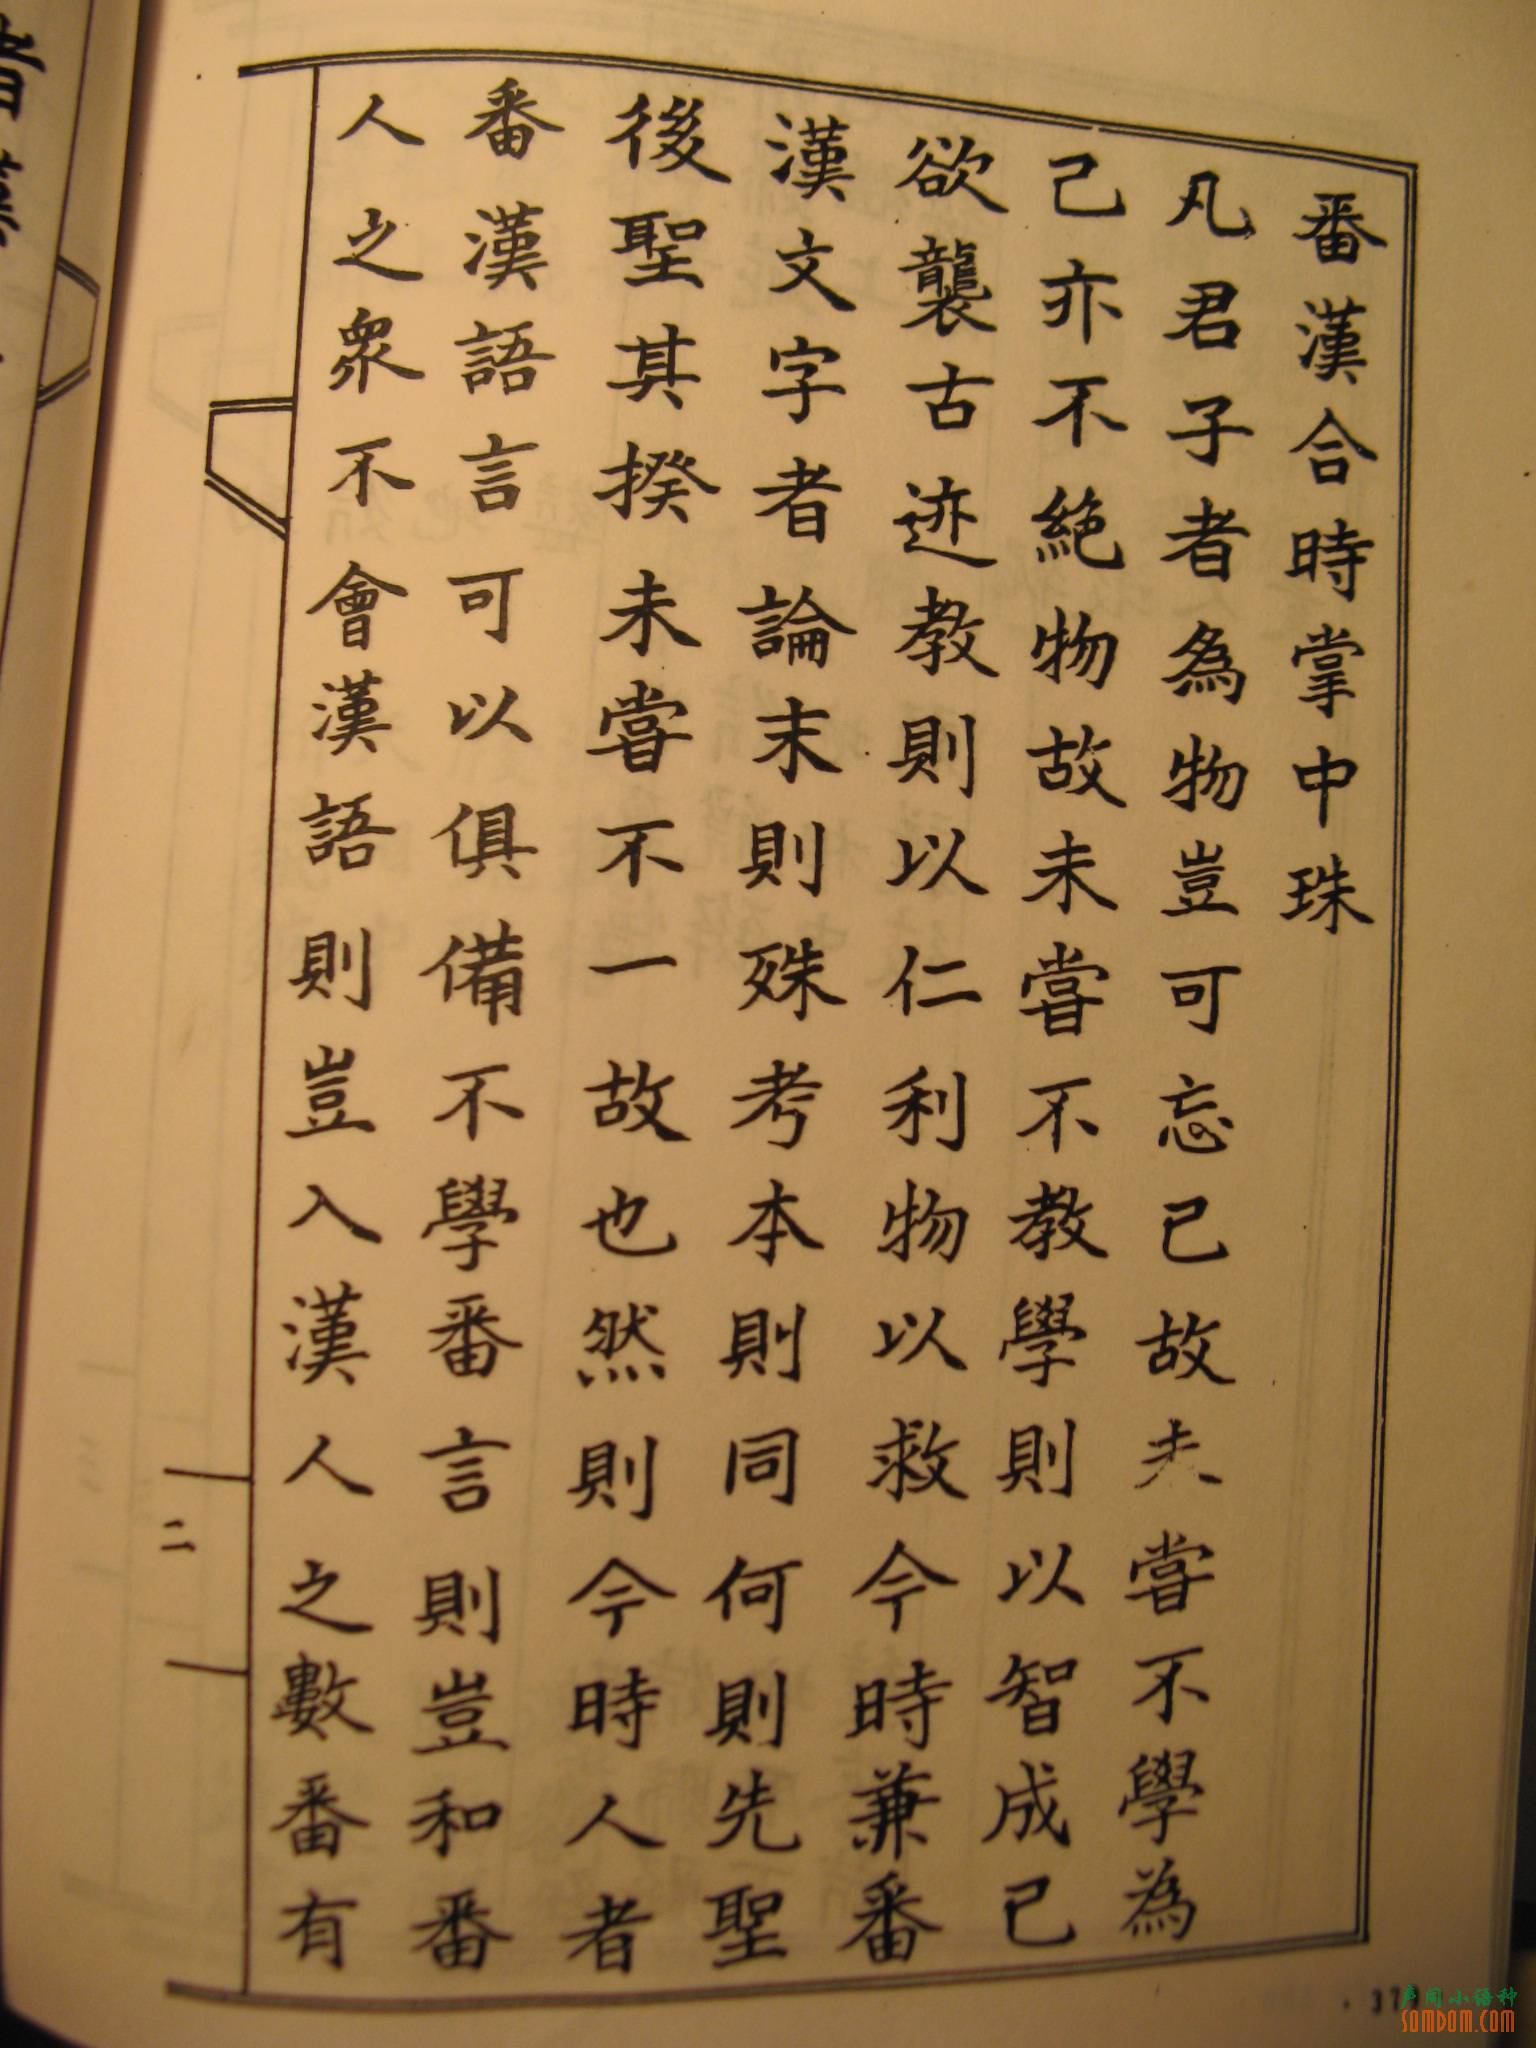 番漢合時掌中珠
凡君子者為物豈可忘己故未嘗不學為
己亦不絶物故未嘗不教學則以智成己
欲襲古迹教則以仁利物以救今時兼番
漢文字者論末則殊考本則同何則先聖
後聖其揆未嘗不一故也然則今時人者
番漢語言可以俱備不學番言則豈和番
人之衆不會漢語則豈入漢人之數番有
二
37
声同小语种
SOMDOM.COM